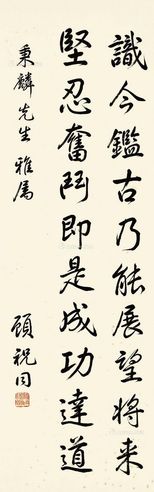 識今鑑古乃能展望将来
堅忍奮鬥即是成功達道
秉麟先生雅属
顧祝同